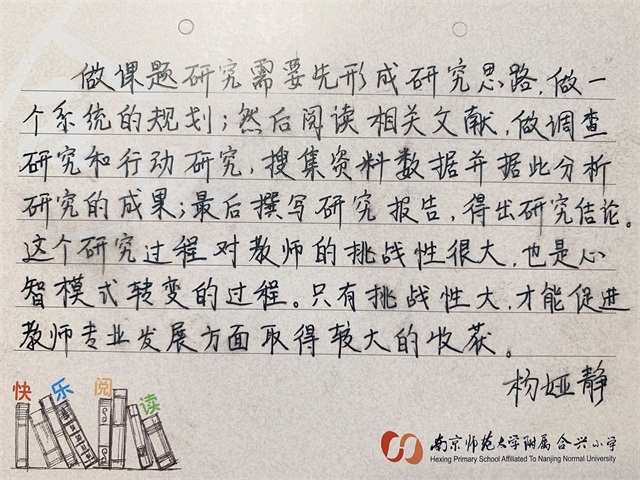 做课题研究需要先形成研究思路，做一
个系统的规划；然后阅读相关文献，做调查
研究和行动研究，搜集资料数据并据此分析
研究的成果；最后撰写研究报告，得出研究结论。
这个研究过程对教师的挑战性很大，也是心
智模式转变的过程。只有挑战性大，才能促进
教师专业发展方面取得较大的收获。
杨娅静
快乐阅读
南京师范大学附属合兴小学
Hexing Primary School Affiliated To Nanjing Normal University